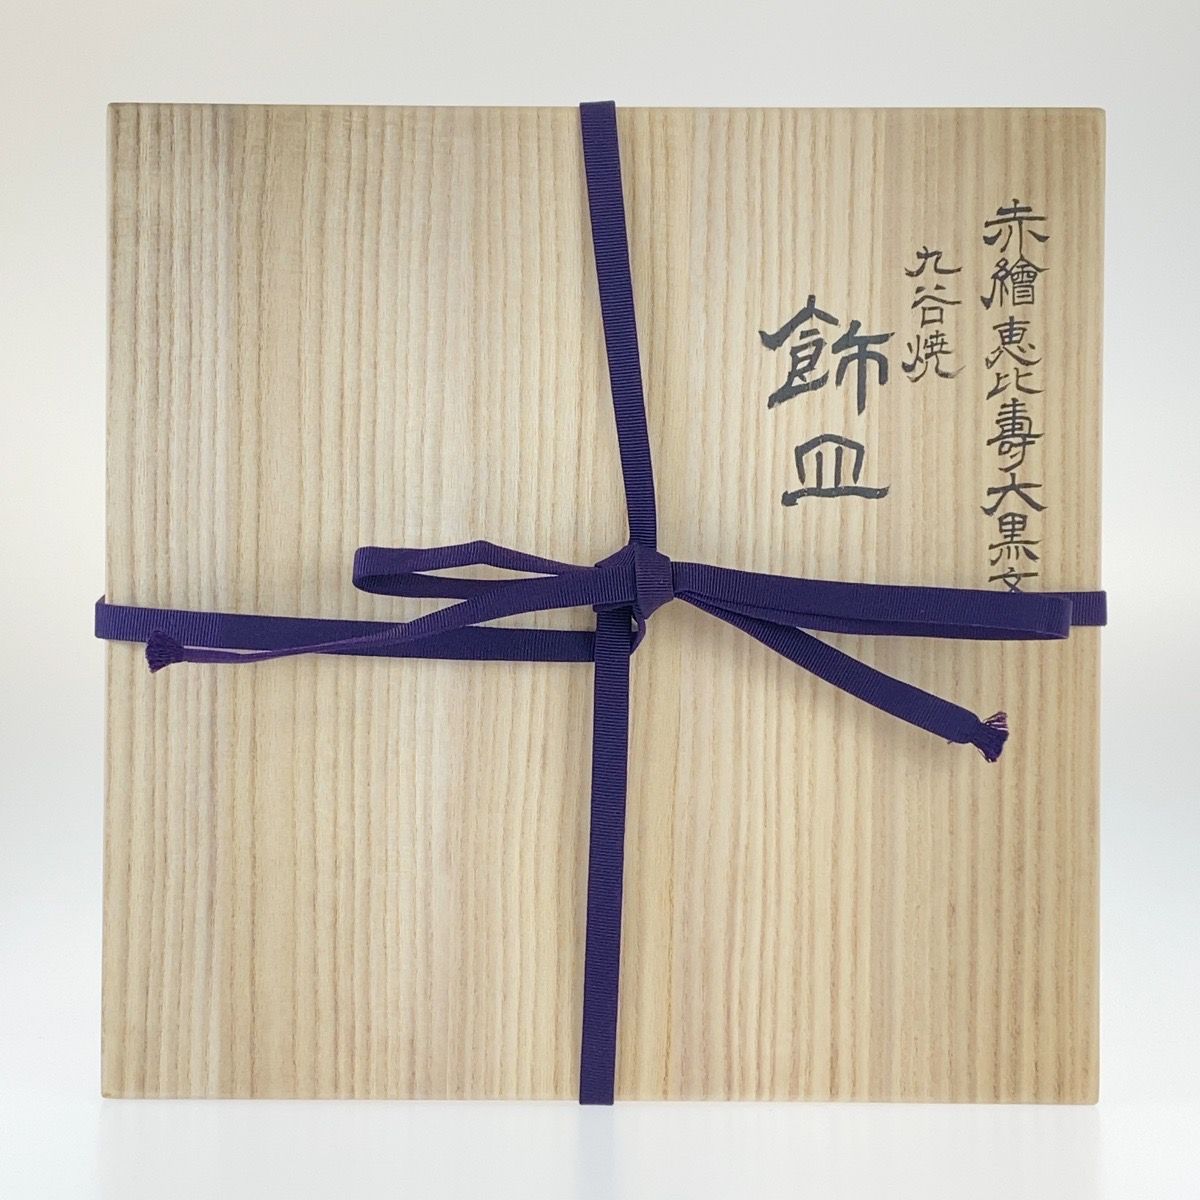 赤繪恵比壽大黒文
九谷焼
飾皿